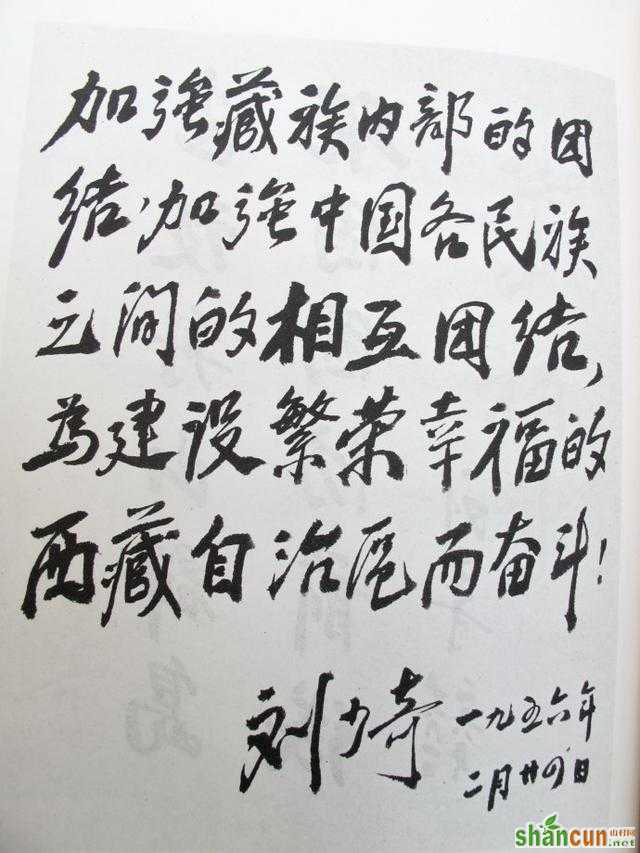 加強藏族内部的团
结，加強中国各民族
之间的相互团结，
为建设繁荣幸福的
西藏自治區而奋斗！
刘少奇
一九五六年
二月廿四日
shancun 山村网
.net